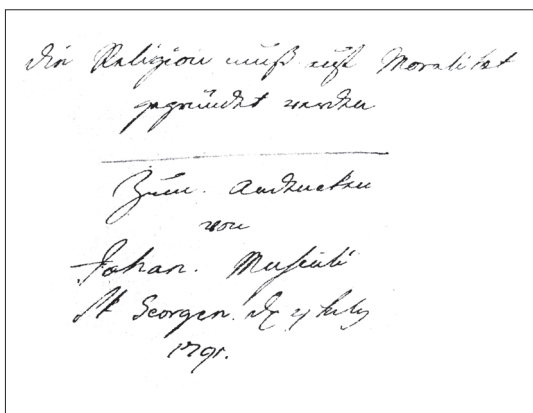 die Religion muß auf Moralität
gegründet werden
Zum. Andencken
von
Johan.
St Georgen. July
1791.